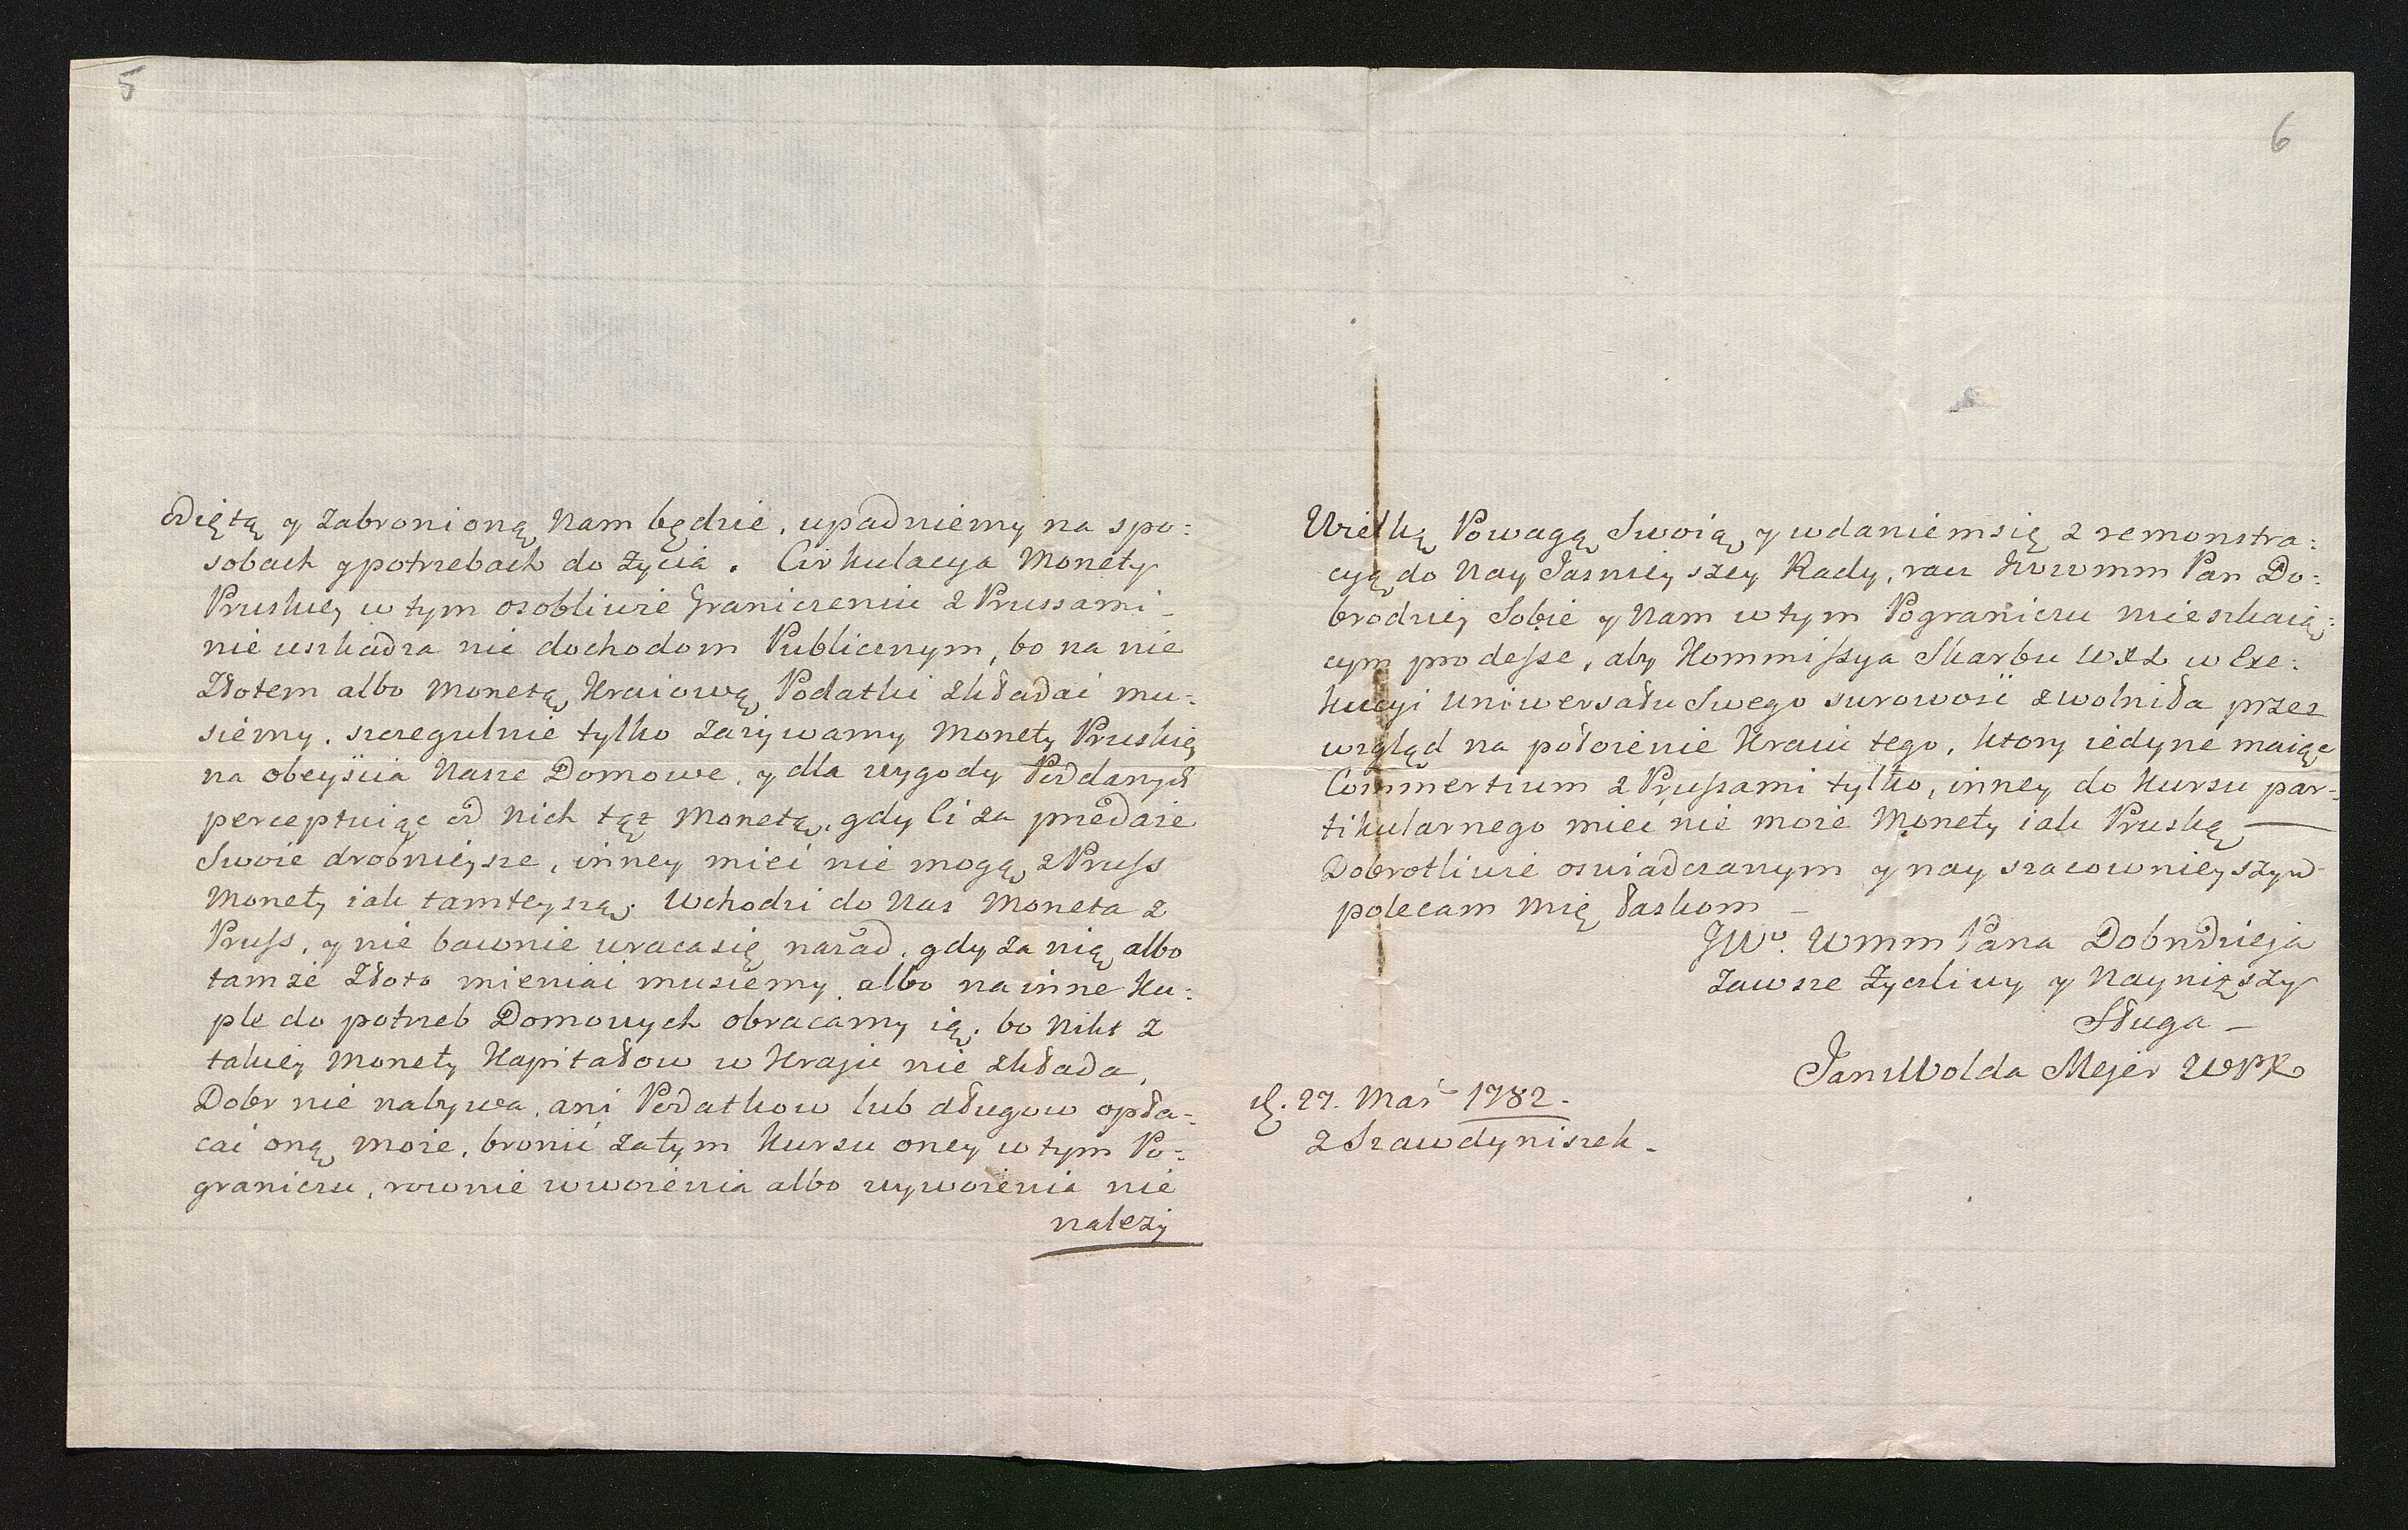 5
odiętą y zabronioną nam będzie, upadniemy na spo:
sobach y potrzebach do życia. Cirkulacya Monety
Pruskiey w tym osobliwie Graniczeniu z Prussami _
nie uszkadza nic dochodom Publicznym, bo na nie
Złotem albo Monetą Kraiową Podatki składać mu:
siemy. szczegulnie tylko zażywamy Monety Pruskiey
na obeyścia Nasze Domowe, y dla wygody Poddanych
perceptuiąc od nich tąż Monetą, gdy ci za przedaże
Swoie drobnieysze, inney mieć nie mogą z Pruss
Monety iak tamteyszą. Wchodzi do Nas Moneta z
Pruss, y nie bawnie wraca się nazad, gdy za nią albo
tamże Złoto mieniać musiemy, albo na inne Ku:
ple do potrzeb Domowych obracamy ią. bo nikt z
takiey Monety Kapitałow w Kraju nie składa,
Dobr nie nabywa, ani Podatkow lub długow opła-
cać oną może, bronić zatym Kursu oney w tym Po:
graniczu, rownie wwożenia albo wywożenia nie
należy
6
Wielką Powagą Swoią, y wdaniem się z remonstra:
cyą do Nay Jasnieyszey Rady, racz JWWmm Pan Do:
brodziey Sobie y Nam w tym Pograniczu mieszkaią:
cym prodesse, aby Kommissya Skarbu WXL w Exe:
kucyi Uniwersału Swego surowość zwolniła przez
wzgląd na położenie Kraiu tego, ktory iedyne maiąc
Commertium z Prussami tylko, inney do Kursu par-
tikularnego mieć nie może Monety iak Pruską —
Dobrotliwie oswiadczanym y nay szacownieyszym
polecam mię łaskom _
JWo. Wmm Pana Dobrodzieja
zawsze Życzliwy y Nayniższy
Sługa _
Jan Wolda Mejer
d. 27. Mar 1782.
z Szawdyniszek.